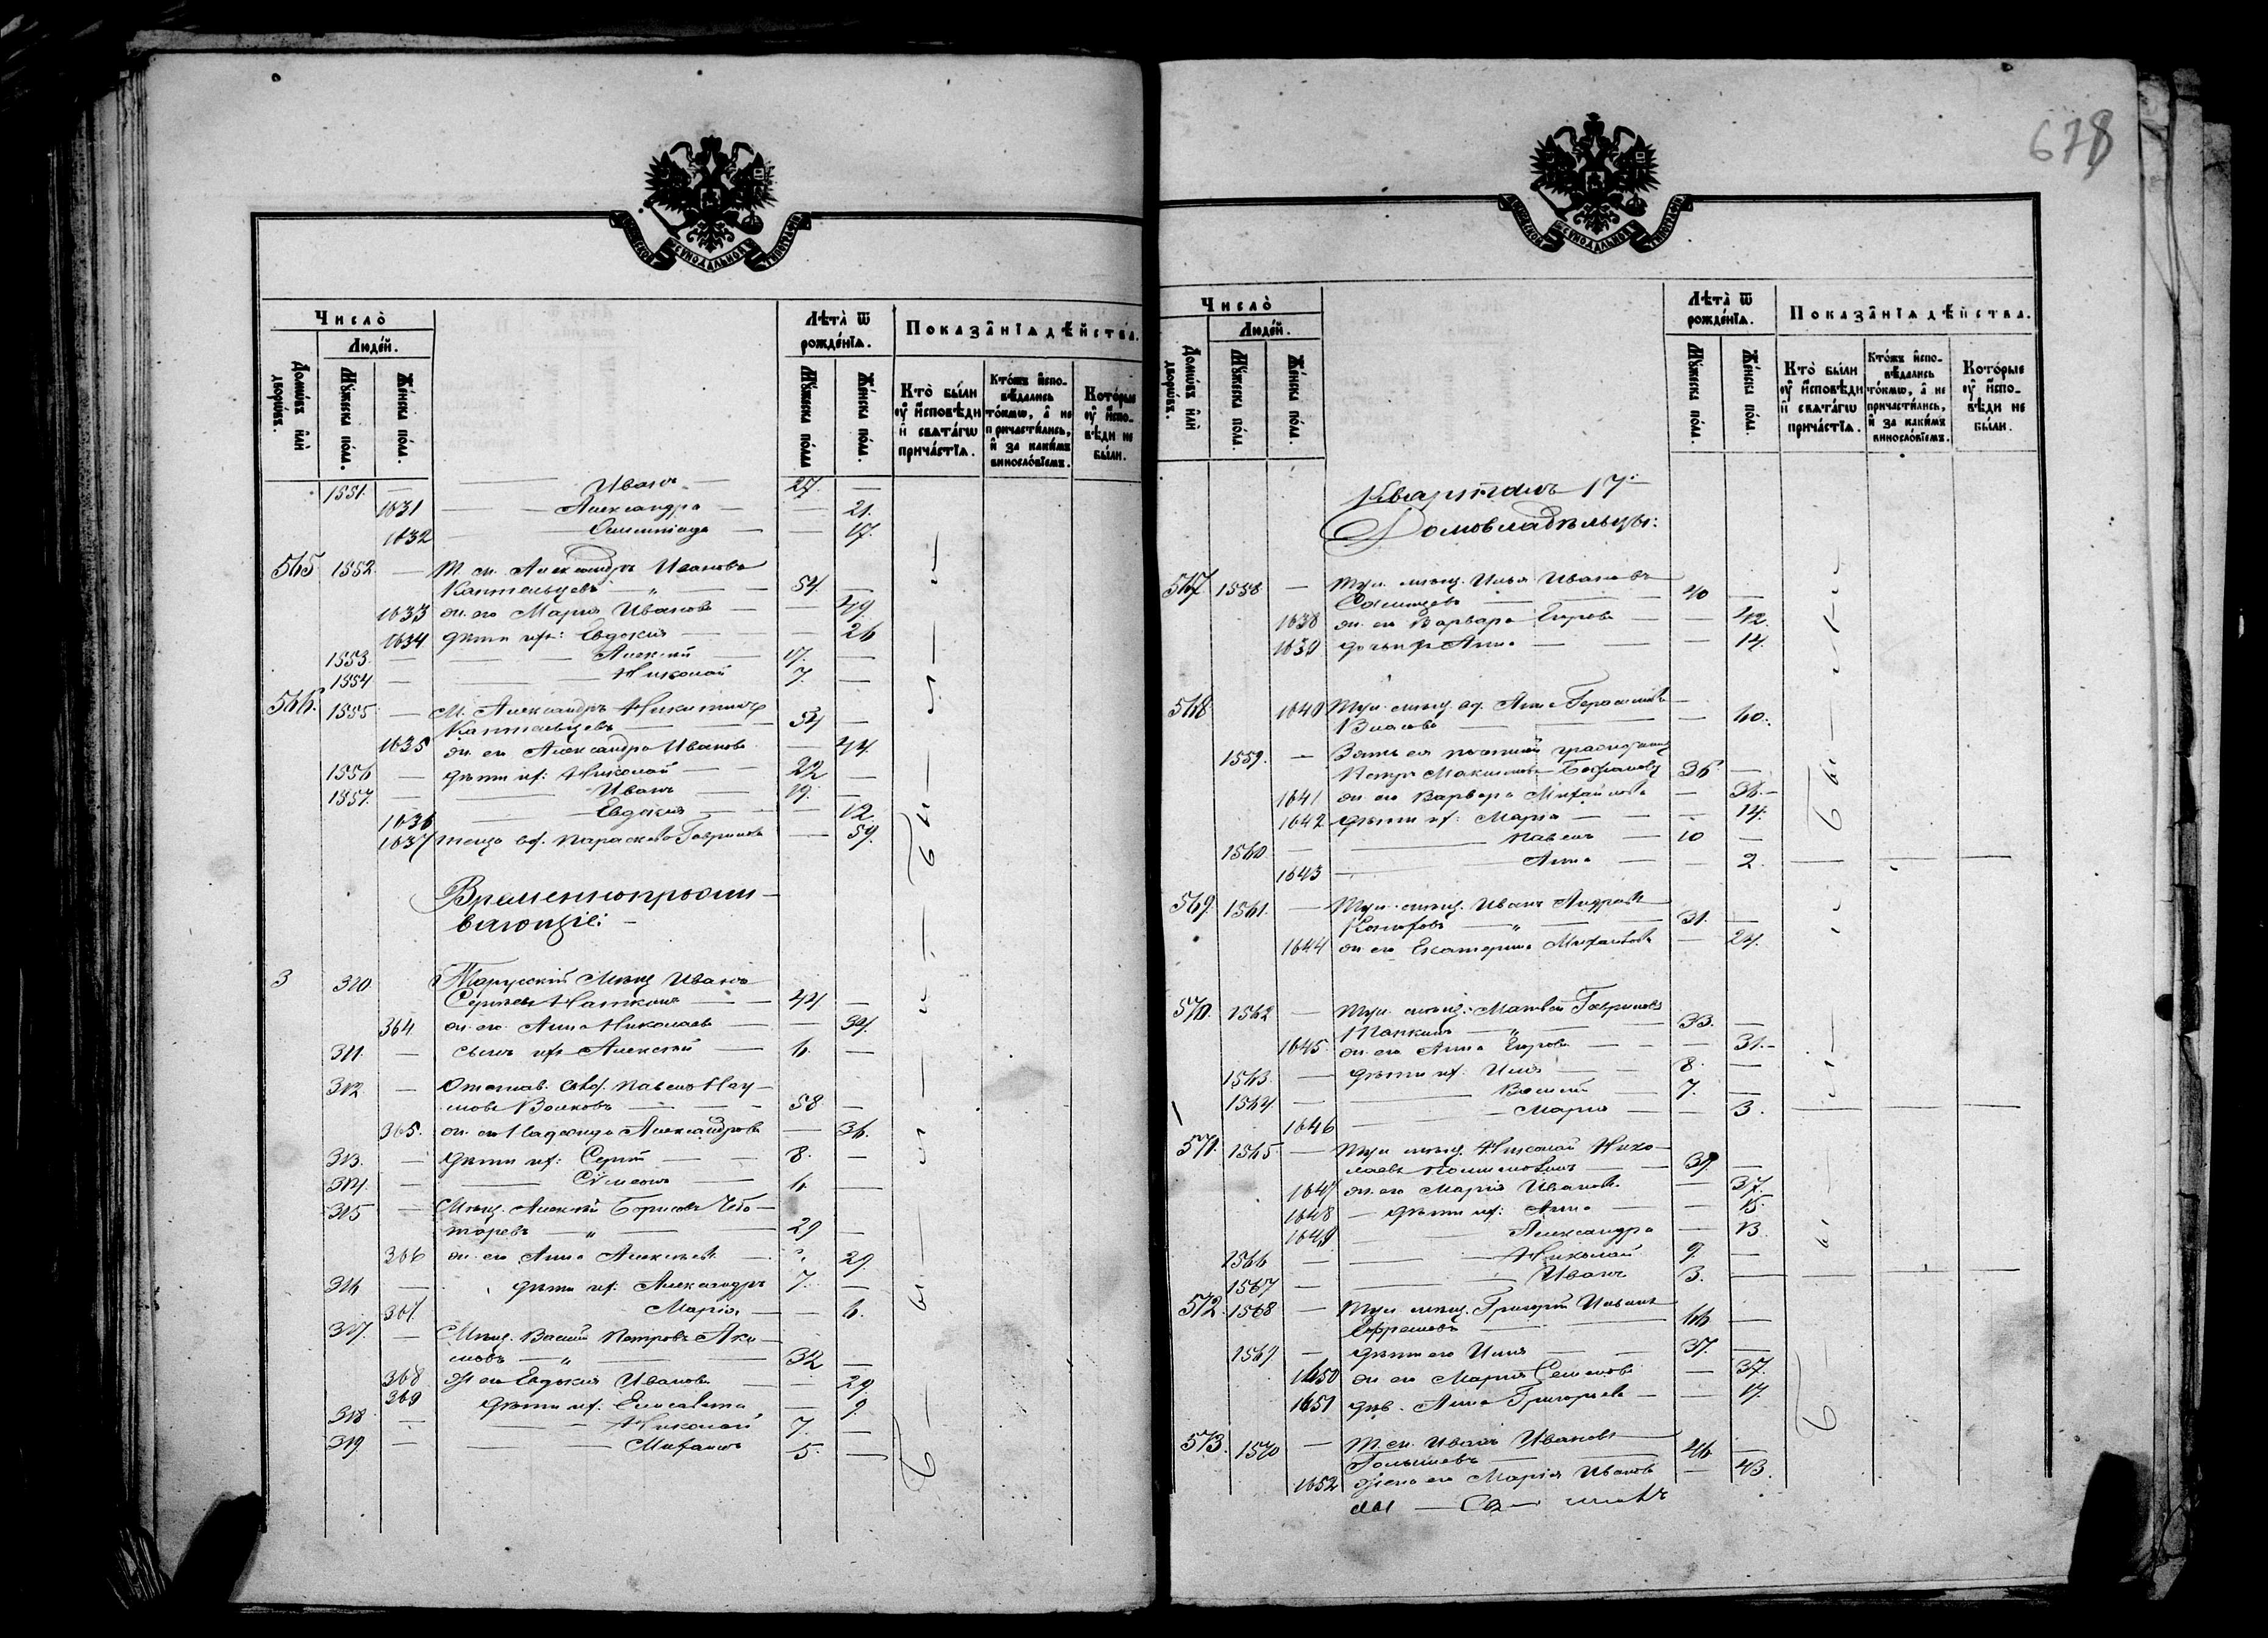 678
МОСКОВСКОЙ СѴНОДАЛЬНОЙ ТИПОГРАФІИ
Число̀
Люде́й.
Домѡ́въ и҆лѝ дворѡ́въ.
Мꙋ́жеска по́ла.
Же́нска по́ла.
Лѣ́та ѿ рожде́нїѧ.
Мꙋ́жеска по́ла
Же́нска по́ла.
Показа̂нїѧ дѣ́йства.
Кто̀ бы́ли ᲂу҆ и҆сповѣ́ди и҆ свѧта́гѡ прича́стїѧ.
Кто́жъ и҆спо-вѣ́дались то́кмѡ, а҆ не причасти́лись, и҆ за каки́мъ виносло́вїемъ.
Кото́рые ᲂу҆ и҆спо-вѣ́ди не бы́ли.
1551. — Иванъ — 27. —
1631 — Александра — — 21.
1632 — Олимпіада — — 17.
565 1552 — Т. м. Александръ Ивановъ
Каттельцевъ — „ — 54. —
1633 ж. его Марія Иванова — — 49.
1634 дѣти ихъ: Евдокія — — 26
1553. — Алексѣй — 17. —
1554 — Николай 7. —
566. 1555 — М. Александръ Никитинъ
Каттельцевъ — 54 —
1635 ж. его Александра Иванова — 44.
1556 — дѣти их: Николай — 22 —
1557. — Иванъ — 19. —
1636 Евдокія — — 12.
1637 теща вд. Параскева Гаврилова — 59.
Временнопрожи-
вающіе:
3 310 Тарусскій Мѣщ Иванъ
Сергѣевъ — 44 —
364 ж. его Анна Николаева — — 34.
311. — сынъ ихъ Алексѣй — 6. —
312 — Отстав. Павелъ Нау-
мовъ Волковъ — 58 —
365. ж. его Надежда Александрова — 36.
313. — дѣти их: Сергій — 8. —
314. — Сѵмеонъ — 6. —
315 — Мѣщ. Алексѣй Борисовъ Чебо-
таревъ — „ — 29 —
366 ж. его Анна Алексѣева — 29
316 — дѣти их: Александръ 7. —
367. Марія — — 6.
317. — Мѣщ. Василій Петровъ Аки-
мовъ — „ — 32 —
368 ж его Евдокія Иванова — 29
369 дѣти их. Елисавета — 9.
318 — Николай 7. —
319 — Михаилъ 5. —
Были
Кварталъ 17й
Домовладѣльцы:
567. 1558 — Тул. мѣщ. Илья Ивановъ
40 —
1638 ж. его Варвара Егорова — — 42.
1639 дочь их Анна — — 14.
568 1640 Тул. мѣщ. вд. Анна Герасимова
Власова — — 60.
1559. — Зять ея почетный гражданинъ
Петръ Максимовъ 36 —
1641 ж. его Варвара Михайлова — 36. —
1642 дѣти их: Марія — — 14.
1560 — Павелъ — 10 —
1643 — Анна — — 2.
569. 1561. — Тул. мѣщ. Иванъ Андреевъ
— „ — 31. —
1644 ж. его Екатерина Михайлова — 24.
570. 1562 — Тул. мѣщ. Матвей Гавриловъ
Папкинъ — „ — 33. —
1645. ж. его Анна Егорова — — 31. —
1563. — дѣти их: Илья — 8. —
1564 — Василій — 7. —
1646 — Марія — — 3.
571. 1565 — Тул мѣщ. Николай Нико-
лаевъ — 39. —
1647 ж. его Марія Иванова — 37.
1648 — дѣти их: Анна — — 15.
1649 — Александра — 13.
1566 — Николай 9. —
1567 — Иванъ 3. —
572. 1568 — Тул мѣщ. Григорій Ильинъ
Ефремовъ — 66 —
1569 — дѣти его Илья — 37. —
1650 ж его Марія Семенова — 37.
1651 дѣв. Анна Григорьева — 17.
573. 1570 — Т. м. Иванъ Ивановъ
Голышевъ — 46 —
1652 жена его Марія Иванова — 43.
Были